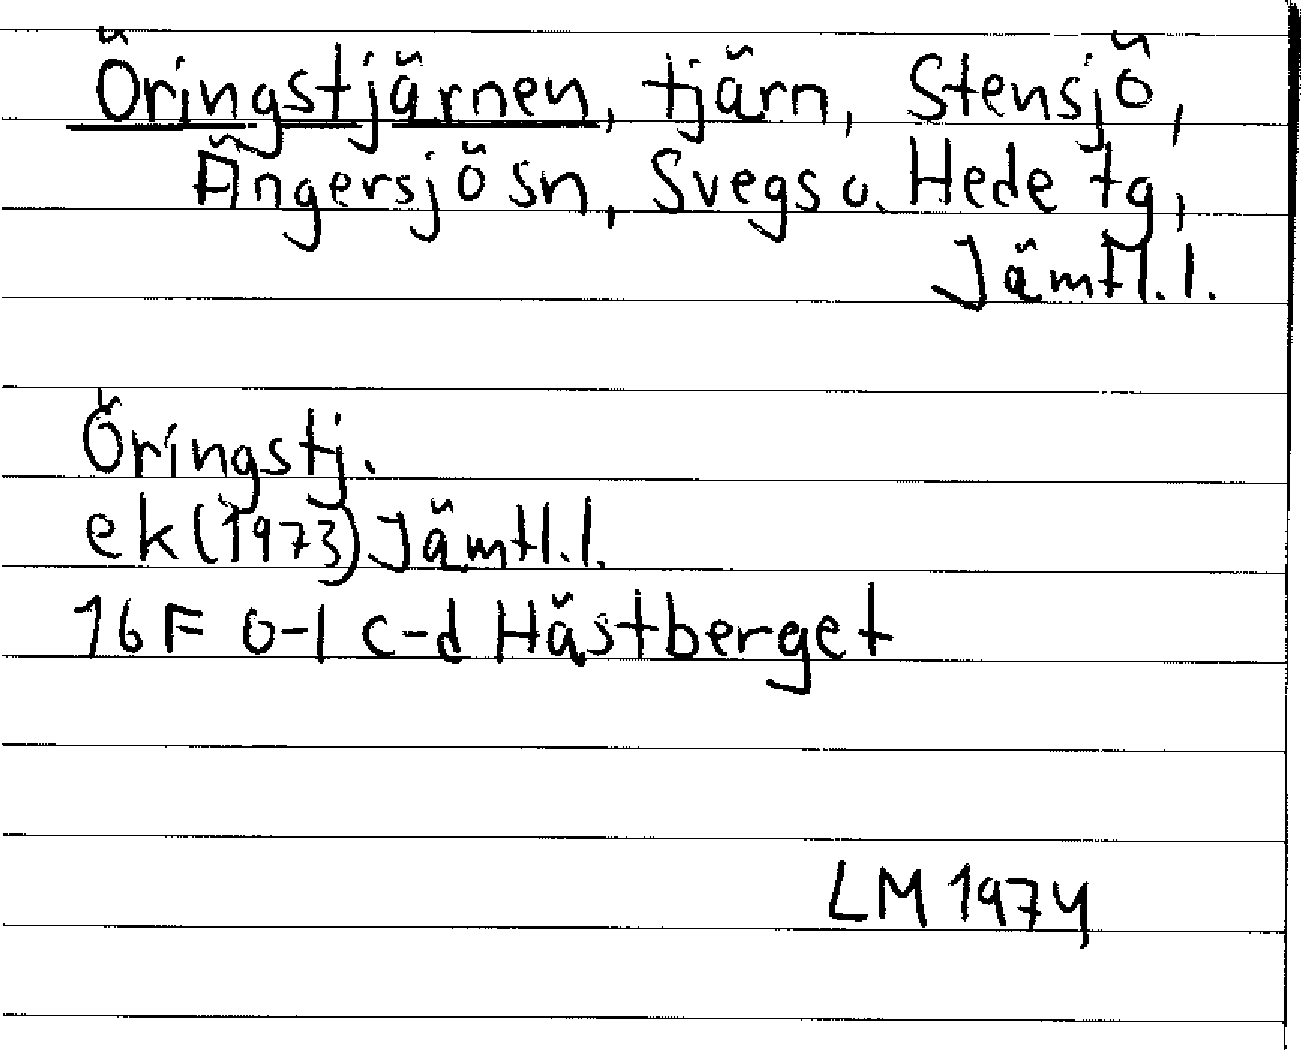 Öringstjärnen, tjärn, Stensjö,
Ängersjö sn, Svegs o. Hede tg,
Jämtl. l.
Öringstj.
ek (1973) Jämtl. l.
16 F 0-1 c-d Hästberget
LM 1974